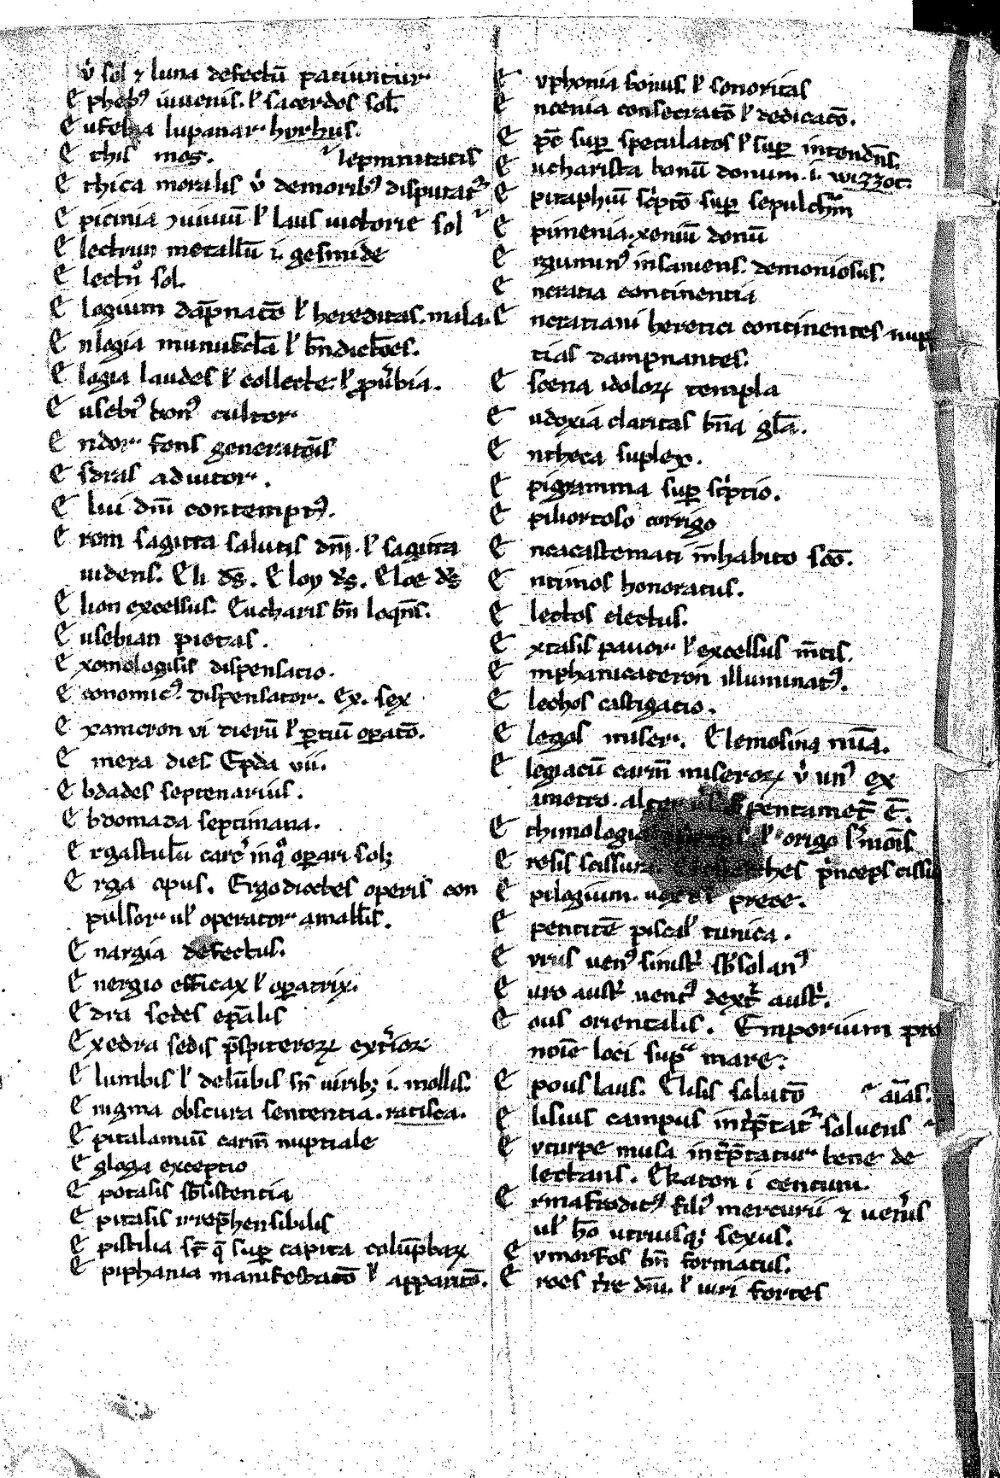 v̉ sol ⁊ luna defectū patiuntur
E pheb᷒ iuuenis. ł sacerdos sol̄.
E ufebia lupanar horhus.
E this mos. lepmnitatis
E thica moralis v̉ demorib᷒ disputat᷑
E picinia ⁊uiuiū ł laus uictorie sol
E lectrun metallū i. gesmide
E lectr̊ sol.
E logium dāpnatō ł hereditas. mala.
E nlogia munuscl̄a ł bn̄dictōes.
E logia laudes ł collecte. ł ꝓu̇bia.
E usebi᷒ bon᷒ cultor
E ndor fons generatōis
E sdras adiutor.
E liui dn̄i contempt᷒.
E rom sagitta salutis dn̄i. ł sagitta
uidens. Eli ds̄. E loy ds̄. E loe ds̄
E lion excelsus. Eucharis bn̄ loqn̄s.
E usebian pietas.
E xomologisis dispensatio.
E conomic᷒ dispensator. Ex. sex
E xameron vi dierū ł ꝑtiū oꝑatō.
E mera dies Epda vii.
E bdades septenarius.
E bdomada septimana.
E rgastulū carc̉ inqͦ oꝑari solꝫ
E rga opus. Ergodioctes operis con
pulsor ul̉ operator amall̄is.
E nargia defectus.
E nergio efficax ł oꝑatrix.
E dra sedes epāl̄is
E xedra sedis p̄sp̄iteroꝝ ext̉ioꝝ
E lumbis ł delūbis sn̄ viribꝫ i. mollis.
E nigma obscura sententia. ratisca.
E pitalamiū carm̄ nuptiale
E gloga exceptio
E potalis sb̄sistentia
E pitalis irrep̄hensibilis
E pistilia st̄ q̄ suꝑ capita colūpnaꝝ
E piphania manifestatō ł apparitō.
E vphonia bonus. ł sonoritas
E ncenia consecratō ł dedicatō.
E pc̄ suꝑ speculatos ł suꝑ intendēs.
E ucharista bonū donum. i. wizzot.
E pitaphiū sc̉ptō suꝑ sepulchꝝ̄
E pimenia. xeniū donū
E rgumin᷒ insaniens. demoniosus.
E ncratia continentia
E ncratiani heretici continentes nup
tias dampnantes.
E scena idoloꝝ templa
E udoxia claritas bn̄a gl̄a.
E ntheca suplex.
E pigramma suꝑ sc̉ptio.
E piliortoso corrigo
E ncacastemati inhabito scō.
E ntimos honoratus.
E lectos electus.
E xtasis pauor ł excelsus m̄tis.
E mphanicateron illuminat᷒.
E lechos castigatio.
E legos miser. Elemosina mīa.
E legiacū carm̄ miseroꝝ v̉ un᷒ ex
imetro. alter pentamet̄ ē.
E thimologia ł origo s̉mōis
E resis scissura. p̉nceps
E pilogium. prece.
E penticē piscal̄ tunica.
E vrus uent᷒ sinist̉ sb̄solan᷒
E uro aust̉ uent᷒ dext̄ aust̉.
E ous orientalis. Emporium pro
noīe loci supᵃ mare.
E pous laus. Elisis salutō aīas.
E lisius campus int̉p̄tat᷑ soluens
E vturpe musa int̉p̄tatur bene de
lectans. Ekaton i centum.
E rmafrodit᷒ fili᷒ mercurii ⁊ uen̉is
ul̉ hō utriusqꝫ sexus.
E vmorfos bn̄ formatus.
E roes t̉re dn̄i. ł uiri fortes